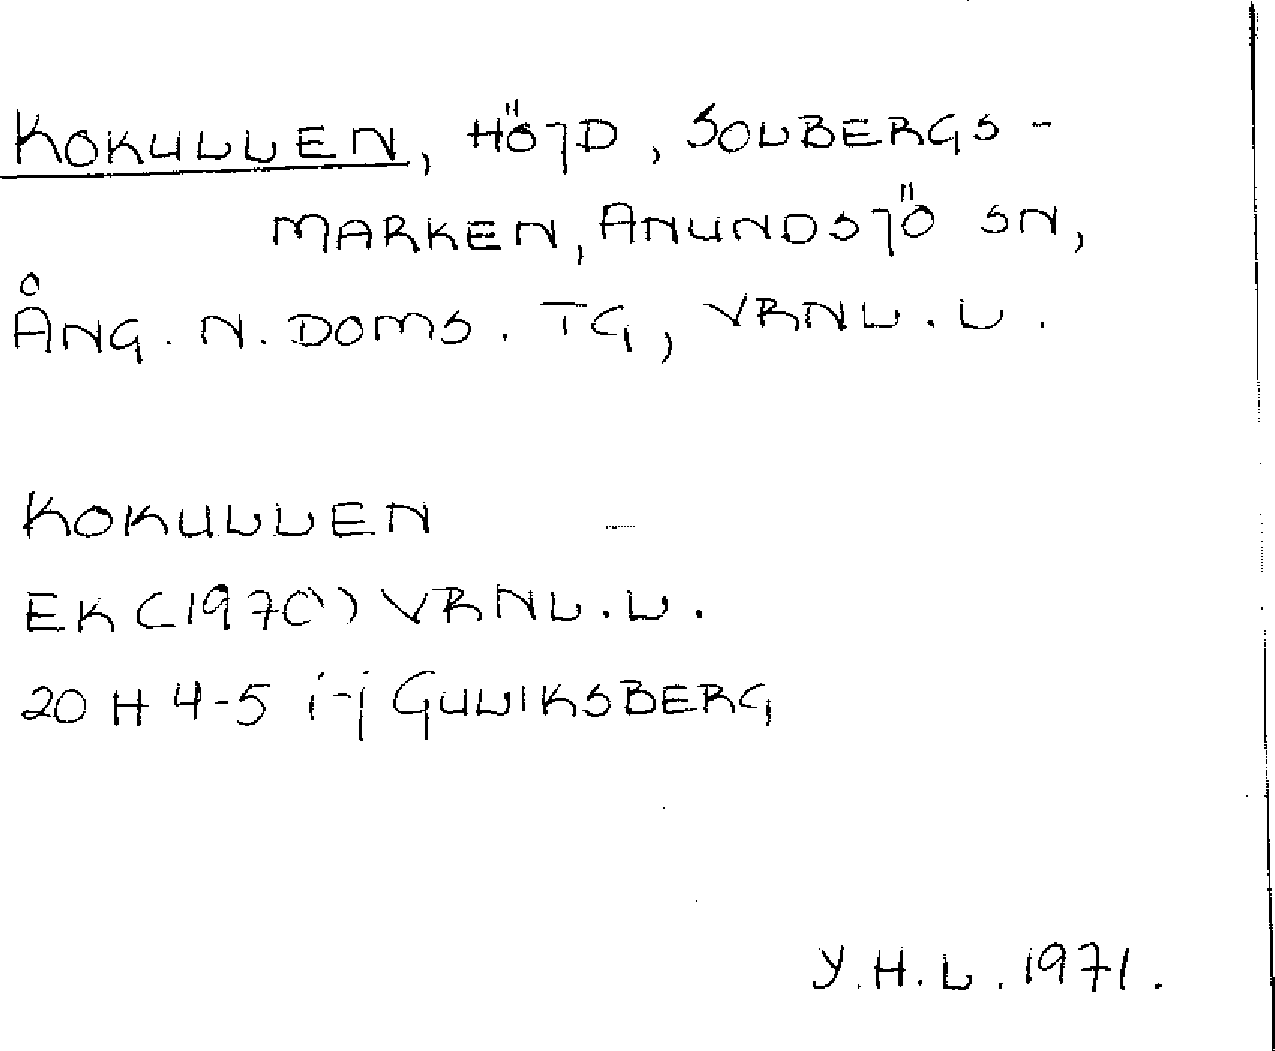 KOKULLEN, HÖJD, SOLBERGS-
MARKEN, ANUNDSJÖ SN,
ÅNG. N. DOMS. TG, VRNL. L.
KOKULLEN –
EK (1970) VRNL. L.
20 H 4-5 i-j GULIKSBERG
Y. H. L. 1971.